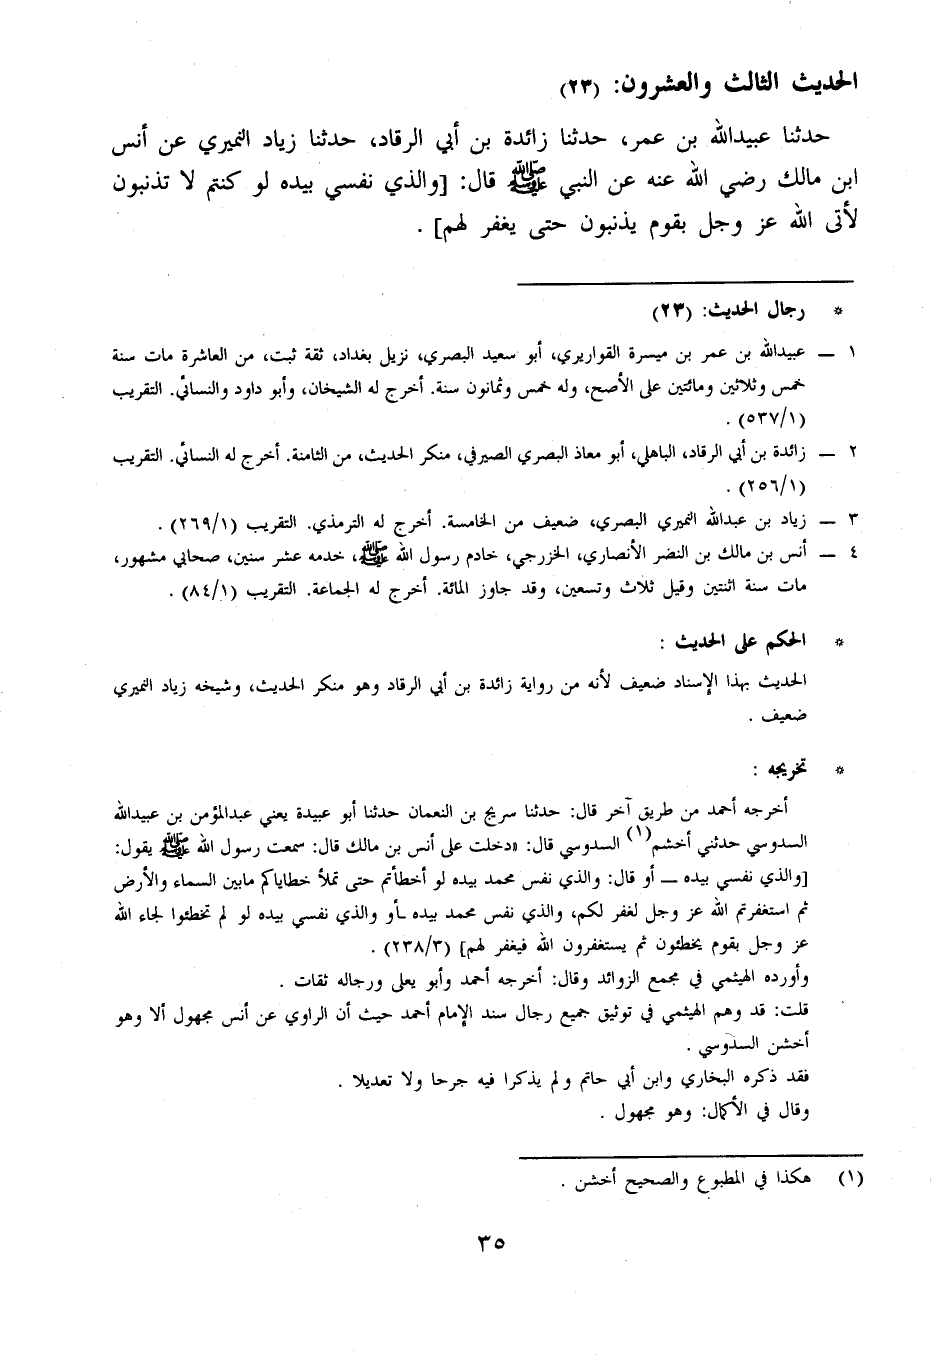 الحديث الثالث والعشرون: (٢٣)
حدثنا عبيدالله بن عمر، حدثنا زائدة بن أبي الرقاد، حدثنا زياد النميري عن أنس
ابن مالك رضي الله عنه عن النبي ﷺ قال: [والذي نفسي بيده لو كنتم لا تذنبون
لأتى الله عز وجل بقوم يذنبون حتى يغفر لهم] .
* رجال الحديث: (٢٣)
١ ــ عبيدالله بن عمر بن ميسرة القواريري، أبو سعيد البصري، نزيل بغداد، ثقة ثبت، من العاشرة مات سنة
خمس وثلاثين ومائتين على الأصح، وله خمس وثمانون سنة. أخرج له الشيخان، وأبو داود والنسائي. التقريب
(٥٣٧/١) .
٢ ــ زائدة بن أبي الرقاد، الباهلي، أبو معاذ البصري الصيرفي، منكر الحديث، من الثامنة. أخرج له النسائي. التقريب
(٢٥٦/١) .
٣ ــ زياد بن عبدالله النميري البصري، ضعيف من الخامسة. أخرج له الترمذي. التقريب (٢٦٩/١) .
٤ ــ أنس بن مالك بن النضر الأنصاري، الخزرجي، خادم رسول الله ﷺ، خدمه عشر سنين، صحابي مشهور،
مات سنة اثنتين وقيل ثلاث وتسعين، وقد جاوز المائة. أخرج له الجماعة. التقريب (٨٤/١) .
* الحكم على الحديث :
الحديث بهذا الإسناد ضعيف لأنه من رواية زائدة بن أبي الرقاد وهو منكر الحديث، وشيخه زياد النميري
ضعيف .
* تخريجه :
أخرجه أحمد من طريق آخر قال: حدثنا سريج بن النعمان حدثنا أبو عبيدة يعني عبدالمؤمن بن عبيدالله
السدوسي حدثني أخشم(١) السدوسي قال: «دخلت على أنس بن مالك قال: سمعت رسول الله ﷺ يقول:
[والذي نفسي بيده ــ أو قال: والذي نفس محمد بيده لو أخطأتم حتى تملأ خطاياكم مابين السماء والأرض
ثم استغفرتم الله عز وجل لغفر لكم، والذي نفس محمد بيده ـأو والذي نفسي بيده لو لم تخطئوا لجاء الله
عز وجل بقوم يخطئون ثم يستغفرون الله فيغفر لهم] (٢٣٨/٣) .
وأورده الهيثمي في مجمع الزوائد وقال: أخرجه أحمد وأبو يعلى ورجاله ثقات .
قلت: قد وهم الهيثمي في توثيق جميع رجال سند الإمام أحمد حيث أن الراوي عن أنس مجهول ألا وهو
أخشن السدوسي .
فقد ذكره البخاري وابن أبي حاتم ولم يذكرا فيه جرحا ولا تعديلا .
وقال في الأكمال: وهو مجهول .
(١) هكذا في المطبوع والصحيح أخشن .
٣٥